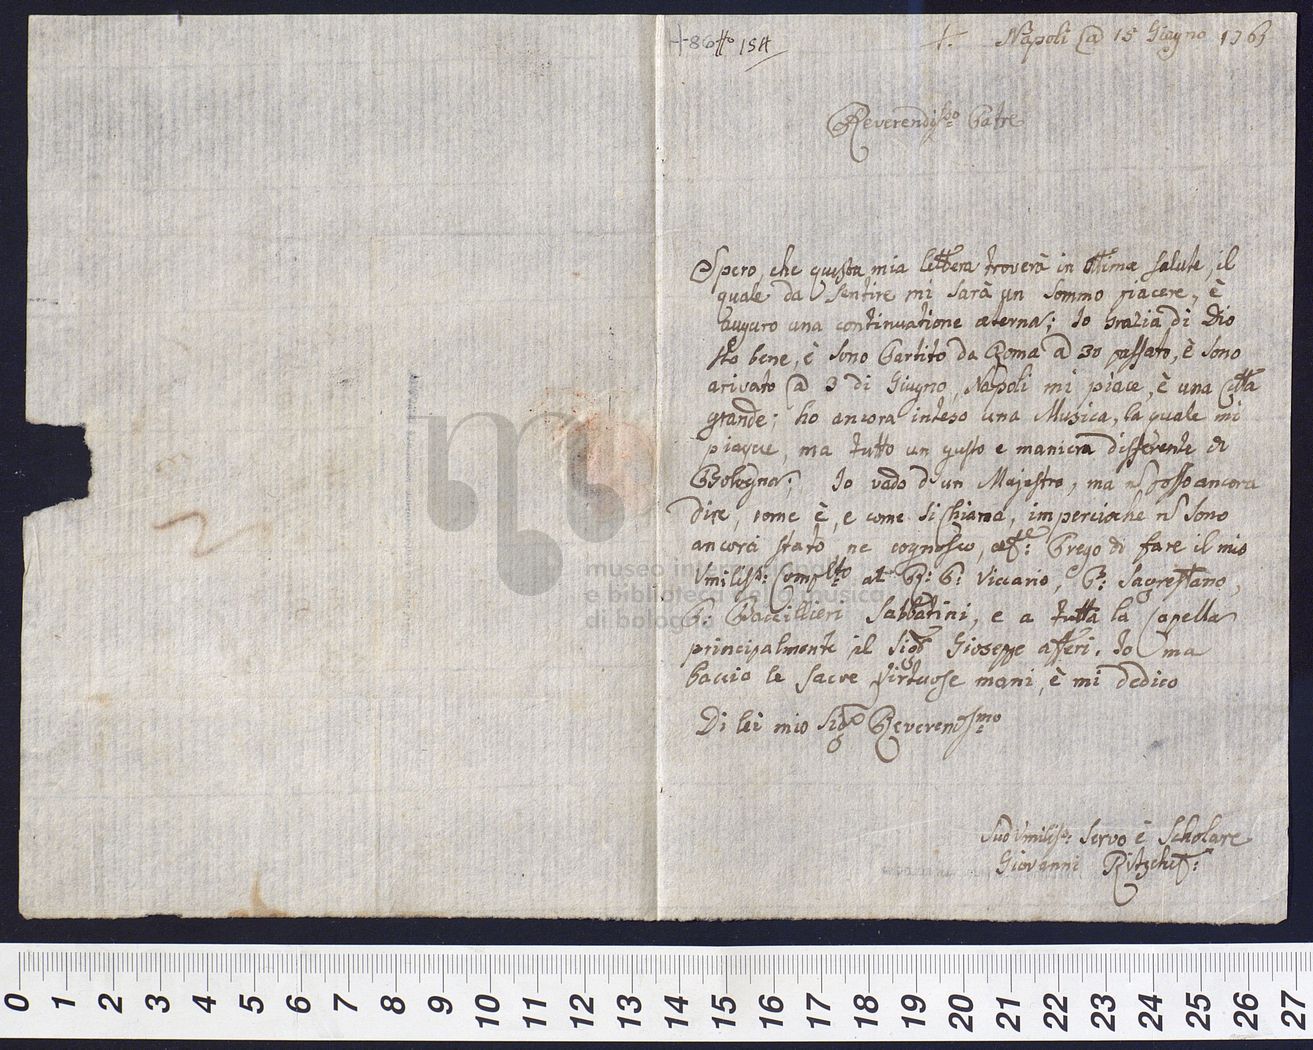 H-86 tto 154
Napoli @ 15 Giugno 1763
Reverendissmo Patre
Spero, che questa mia lettera troverà in ottimæ salute, il
quale da sentire mi sarà un sommo piacere, è
auguro una continuatione æterna; Io grazia di Dio
sto bene, è sono Partito da Roma a 30 passato, è sono
arivato @ 3 di Giugno, Napoli mi piace, è una Citta
grande; ho ancora inteso una Musica, la quale mi
piaque, ma tutto un gusto e maniera differente di
Bologna; Io vado d'un Majestro, ma ñ posso ancora
dire, come è, e come si chiama, impercioche ñ sono
ancora stato, ne cognosco, Prego di fare il mio
Umiliss: Complto al P: Viccario, P: Sagrestano,
P: Baccillieri Sabbatini, e a tutta la Capella
principalmente il Sigr Gioseppe afferi. Io ma
baccio le sacre virtuose mani, è mi dedico
Di lei mio Sigr Reverendsmo
Suo Umiliss: servo è Scholare
Giovanni
museo internazionale
e biblioteca della musica
di bologna
0 1 2 3 4 5 6 7 8 9 10 11 12 13 14 15 16 17 18 19 20 21 22 23 24 25 26 27